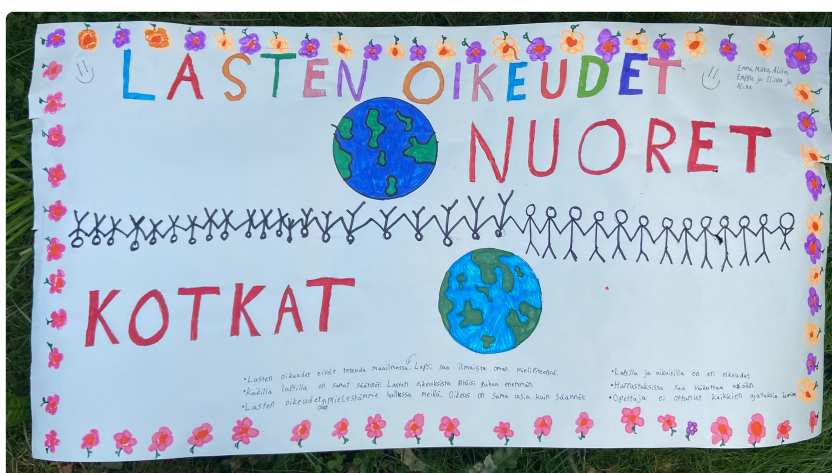 LASTEN OIKEUDET
Emma, Mikko, Alisa,
Emppu ja Eliisa ja
Alisa
NUORET
KOTKAT
•Lasten oikeudet eivät toteudu maailmassa. Lapsi saa ilmaista oman mielipiteensä.
Kaikilla lapsilla on samat säännöt. Lasten oikeuksista pitäisi puhua enemmän
•Lasten oikeudet mielestämme hallussa meillä. Oikeus on sama asia kuin säännöt.
ovat
•Lapsilla ja aikuisilla on eri oikeudet
•Harrastuksissa saa vaikuttaa
•Opettaja ei ottanut kaikkien ajatuksia